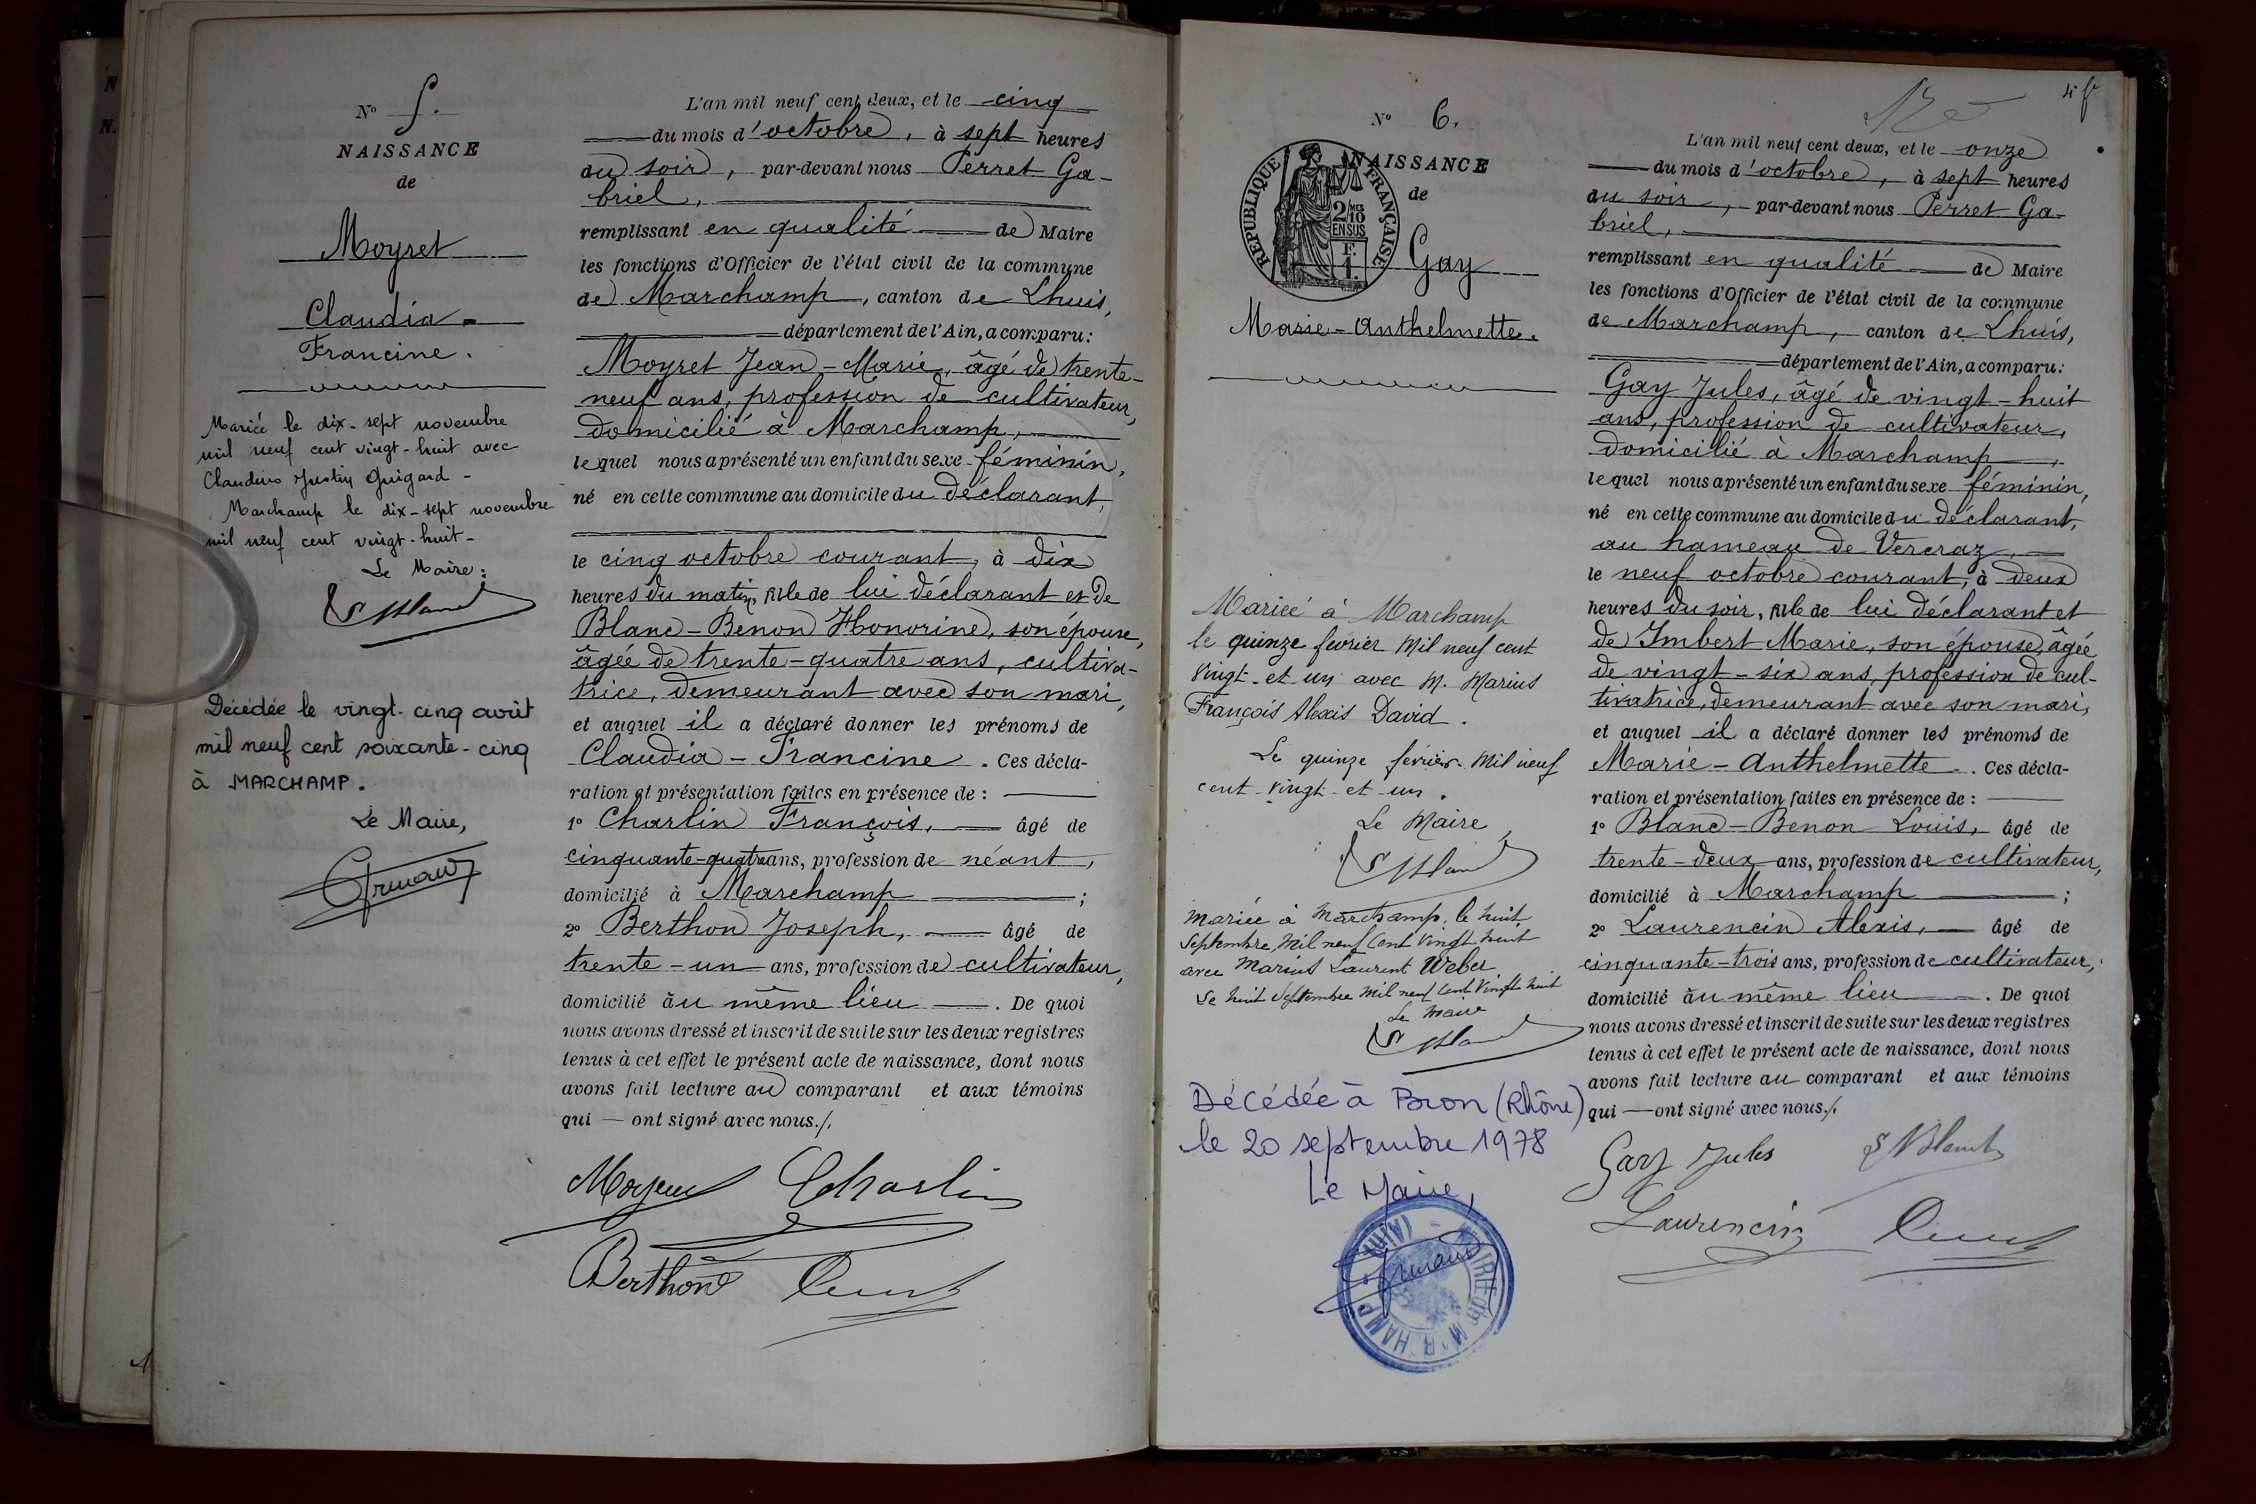 N° 5.
NAISSANCE
de
Moyret
Claudia -
Francine.
Mariée le dix-sept novembre
mil neuf cent vingt-huit avec
Claudius Justin Guigard -
Marchamp le dix-sept novembre
mil neuf cent vingt-huit -
Le Maire:
Décédée le vingt-cinq août
mil neuf cent soixante-cinq
à MARCHAMP.
Le Maire,
L'an mil neuf cent deux, et le cinq
du mois d'octobre, à sept heures
du soir, par-devant nous Perret Ga-
briel,
remplissant en qualité de Maire
les fonctions d'Officier de l'état civil de la commune
de Marchamp, canton de Lhuis,
département de l'Ain, a comparu:
Moyret Jean-Marie, âgé de trente-
neuf ans, profession de cultivateur,
domicilié à Marchamp,
lequel nous a présenté un enfant du sexe féminin,
né en cette commune au domicile du déclarant,
le cinq octobre courant, à dix
heures du matin, fille de lui déclarant et de
Blanc-Benon Honorine, son épouse,
âgée de trente-quatre ans, cultiva-
trice, demeurant avec son mari,
et auquel il a déclaré donner les prénoms de
Claudia-Francine. Ces décla-
ration et présentation faites en présence de :
1° Charlin François, âgé de
cinquante-quatre ans, profession de néant,
domicilié à Marchamp ;
2° Berthon Joseph, âgé de
trente-un ans, profession de cultivateur,
domicilié au même lieu. De quoi
nous avons dressé et inscrit de suite sur les deux registres
tenus à cet effet le présent acte de naissance, dont nous
avons fait lecture au comparant et aux témoins
qui — ont signé avec nous./.
Charlin
Berthon
4 f
N° 6.
NAISSANCE
de
RÉPUBLIQUE FRANÇAISE
2/10 MES
EN SUS
F.
1.
Gay
Marie-Anthelmette.
Mariée à Marchamp
le quinze février Mil neuf cent
vingt-et un avec M. Marius
François Alexis David.
Le quinze février Mil neuf
cent vingt-et-un.
Le Maire,
Mariée à Marchamp, le huit
Septembre Mil neuf Cent Vingt huit
avec Marius Laurent Weber
Le huit Septembre Mil neuf Cent Vingt huit
Le Maire
Décédée à Bron (Rhône)
le 20 septembre 1978
Le Maire,
MAIRIE de MARCHAMP (AIN)
L'an mil neuf cent deux, et le onze
du mois d'octobre, à sept heures
du soir, par-devant nous Perret Ga-
briel,
remplissant en qualité de Maire
les fonctions d'Officier de l'état civil de la commune
de Marchamp, canton de Lhuis,
département de l'Ain, a comparu:
Gay Jules, âgé de vingt-huit
ans, profession de cultivateur,
domicilié à Marchamp,
lequel nous a présenté un enfant du sexe féminin,
né en cette commune au domicile du déclarant,
au hameau de Vercraz,
le neuf octobre courant, à deux
heures du soir, fille de lui déclarant et
de Imbert Marie, son épouse, âgée
de vingt-six ans, profession de cul-
tivatrice, demeurant avec son mari,
et auquel il a déclaré donner les prénoms de
Marie-Anthelmette. Ces décla-
ration et présentation faites en présence de :
1° Blanc-Benon Louis, âgé de
trente-deux ans, profession de cultivateur,
domicilié à Marchamp ;
2° Laurencin Alexis, âgé de
cinquante-trois ans, profession de cultivateur,
domicilié au même lieu. De quoi
nous avons dressé et inscrit de suite sur les deux registres
tenus à cet effet le présent acte de naissance, dont nous
avons fait lecture au comparant et aux témoins
qui — ont signé avec nous./.
Gay Jules
Laurencin